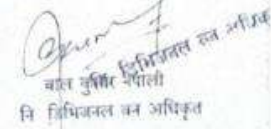 डिभिजनल वन अधिकृत
बाल कुमार नेपाली
नि डिभिजनल वन अधिकृत